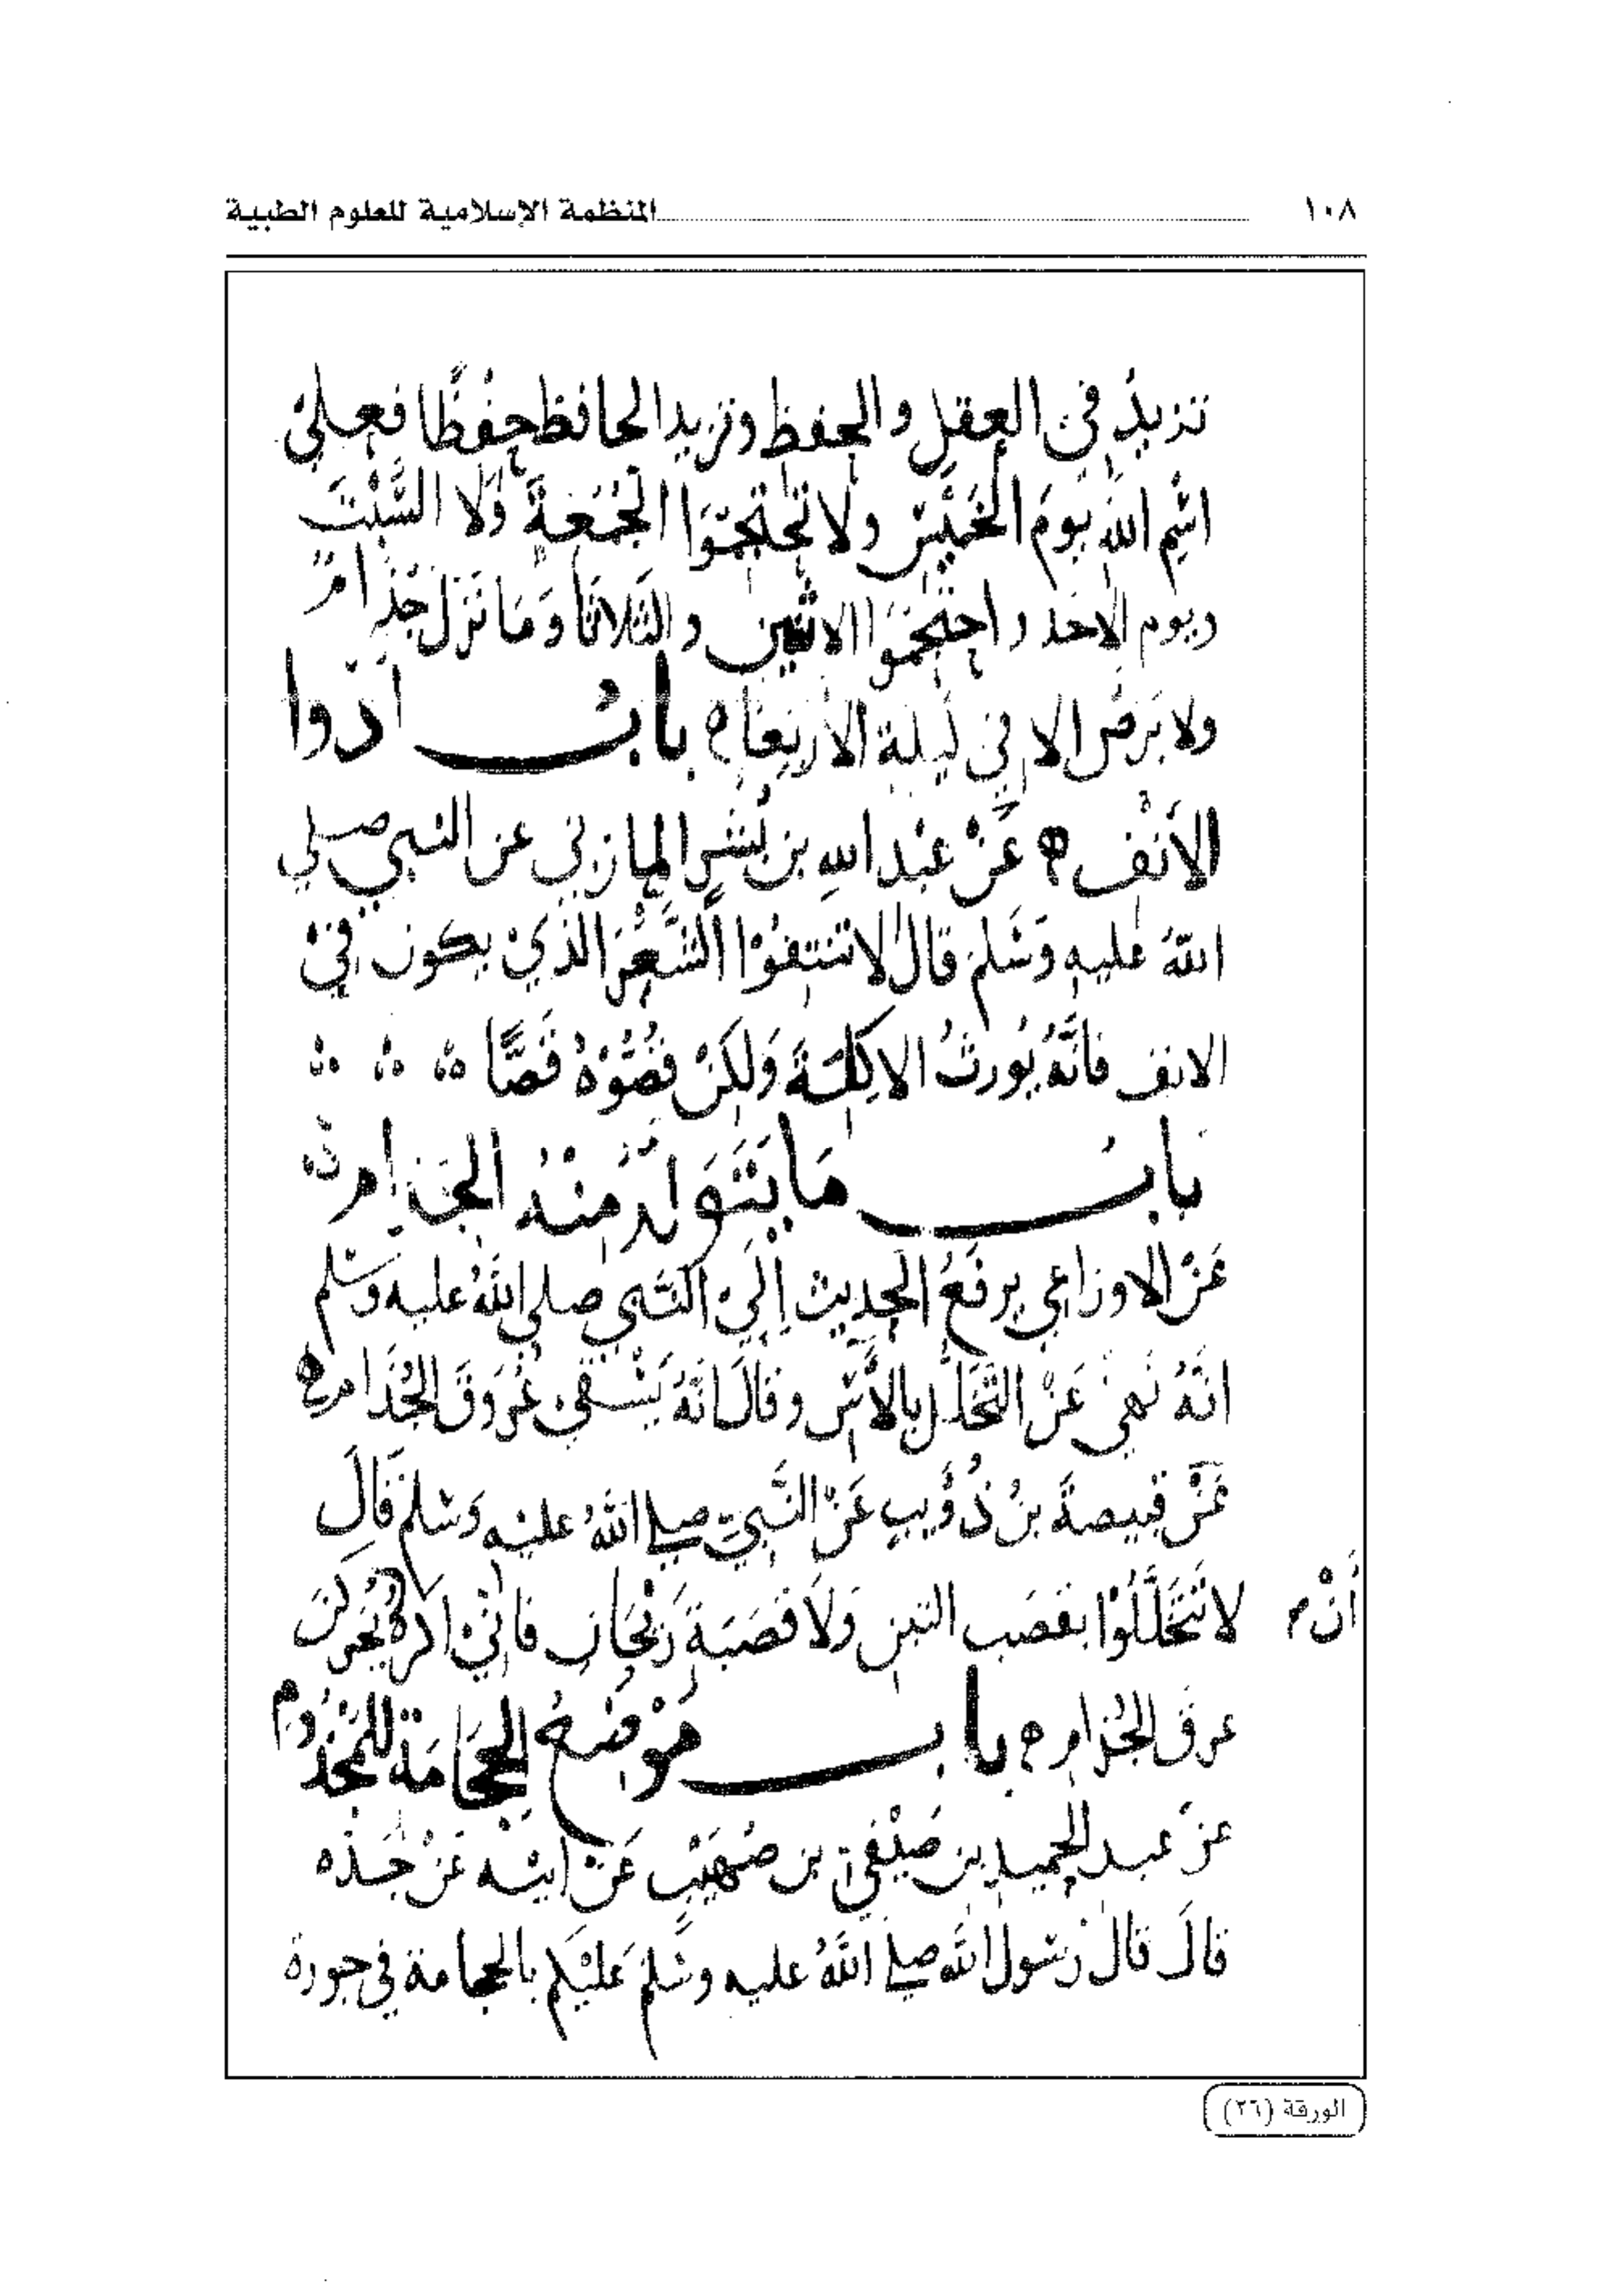 ١٠٨ المنظمة الإسلامية للعلوم الطبية
تزيدُ في العقل والحفظ وتزيد الحافظ حفظًا فعلى
اسْمِ اللهِ يَومَ الخَميْس ولا تحتجمُوا الجُمَعةَ وَلا السَّبْتَ
ويوم الاحَد واحتجمَوا الاثنين والثلاثا وَمَا نَزل جُذامٌ
ولا بَرصٌ الا في ليلة الأربعَاء بابُ ادَوا
الأنْف عَنْ عَبْد اللهِ بن بُسْرٍ المازني عن النبي صلى
اللهُ عليه وَسَلم قال لا تنتفُوْا الشَّعْرَ الذيْ يكون فيْ
الانف فانَّهُ يُورثُ الاكِلَةَ وَلكنْ قُصُّوْهُ قَصًّا
بابُ مَا يَتَوَلدُ مِنْهُ الجُذام
عَنْ الاوزاعي يرفَعُ الحديث إلَىْ النَّبي صلى اللهُ عليه وسَلم
انَّهُ نَهىْ عَنْ التَّخَلُّل بالآس وقالَ انَّهُ يَسْقي عُرُوقَ الجُذَام
عَنْ قبيصةَ بنُ ذُؤَيبٍ عَنْ النَّبيّ صلى اللهُ عليْه وَسَلم قَالَ
لا تَتَخَلَّلُوْا بقصَب التين وَلَا قصَبَة رَيْحَان فانّيْ اكرهُ يُحَركْنَ أنْ
عرقَ الجُذام بابُ مَوْضِعُ الحِجَامَة للمَجْذُوم
عنْ عبد الحميد بن صَيْفيّ بن صُهَيْبٍ عَنْ ابيْه عَنْ جَدّه
قالَ قال رَسُول اللَّه صلى اللَّهُ عليه وسَلمَ عَليْكم بالحجامة في جورة
الورقة (٢٦)